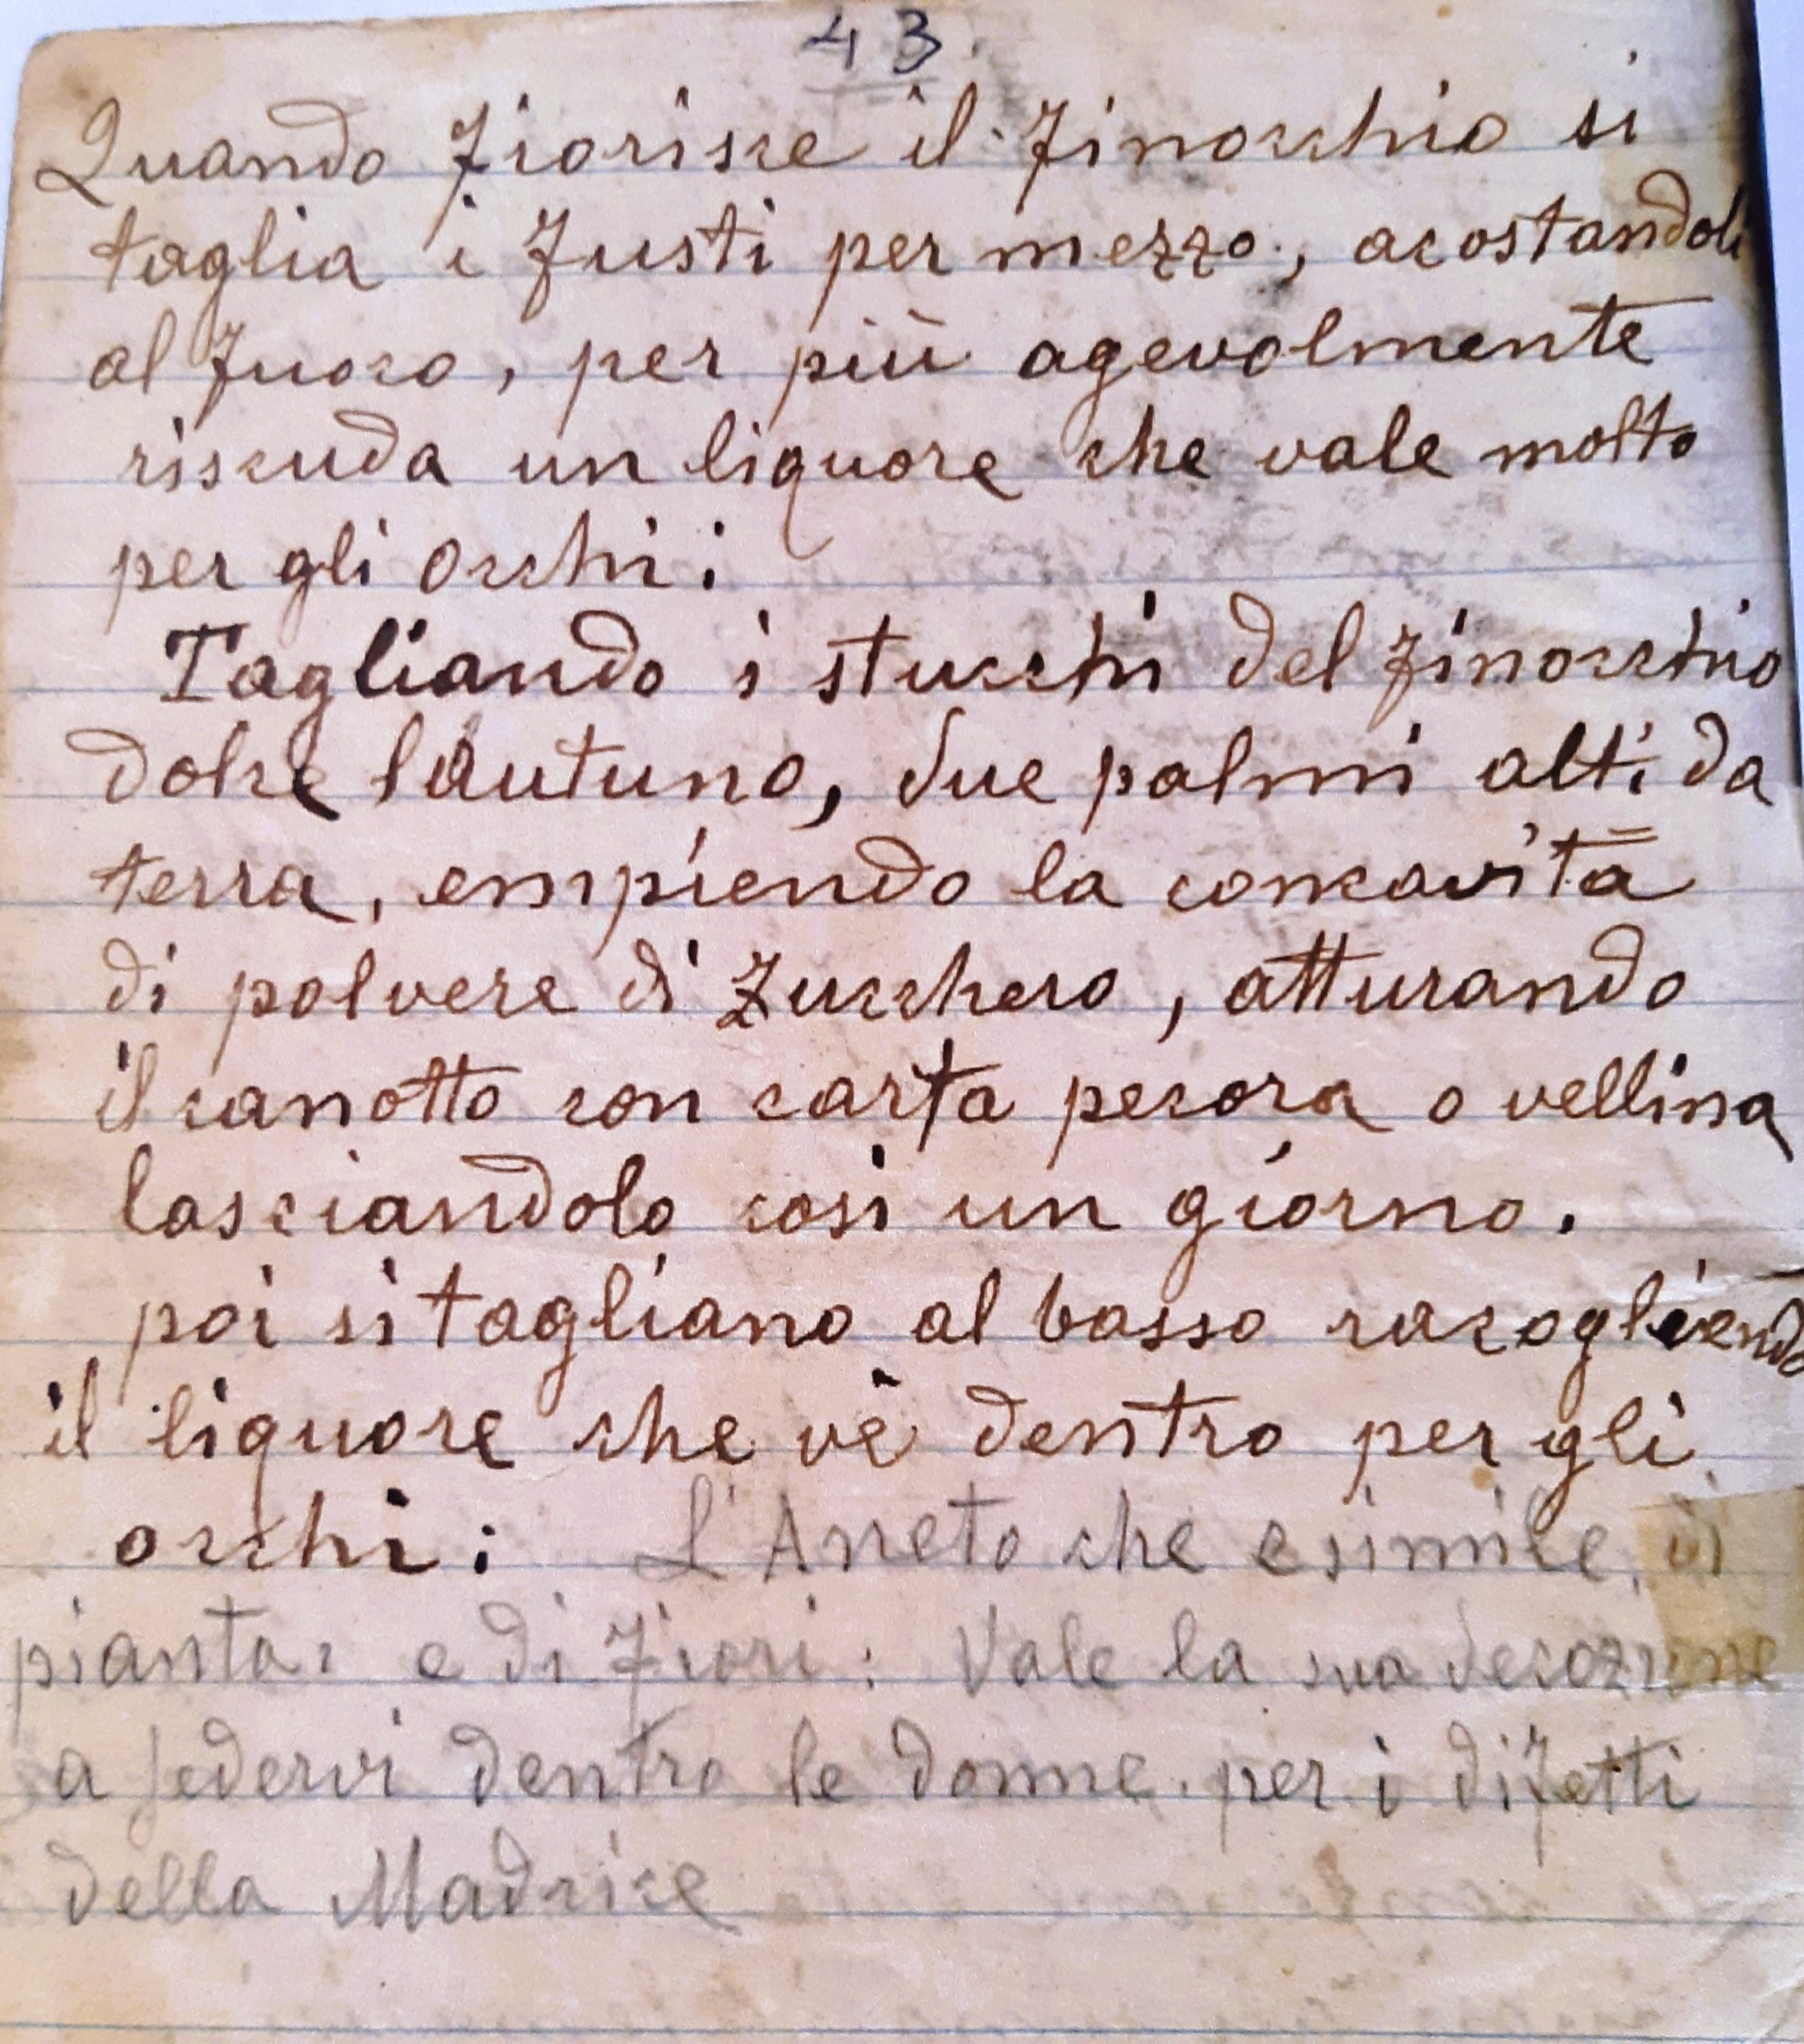 43.
Quando fiorisce il finocchio si
taglia i fusti per mezzo, acostandoli
al fuoco, per più agevolmente
riscuda un liquore che vale molto
per gli occhi:
Tagliando i stucchi del finocchio
dolce lautuno, due palmi alti da
terra, empiendo la concavità
di polvere di zucchero, atturando
il canotto con carta pecora o vellina
lasciandolo così un giorno.
poi si tagliano al basso racogliendo
il liquore che vè dentro per gli
occhi: L'Anneto che e simile, di
pianta: e di fiori: Vale la sua decozione
a sedervi dentro le donne. per i difetti
della Madrice